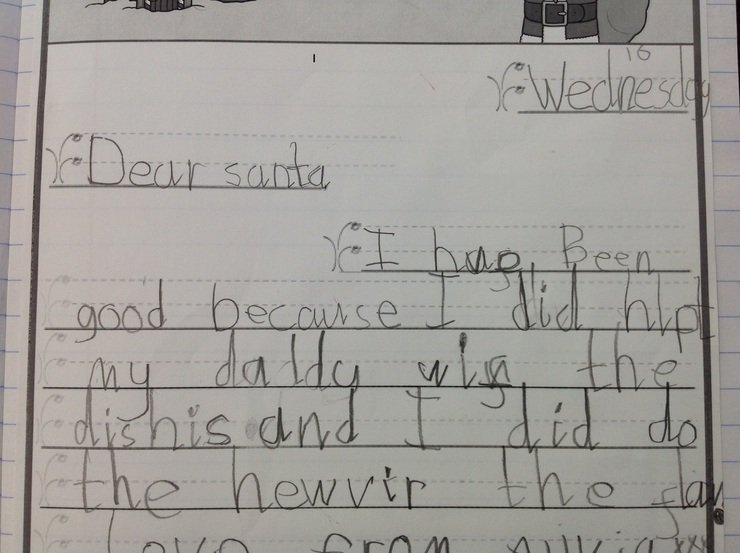 16
Wednesday
Dear santa
I hav Been
good because I did hlpt
my daddy with the
dishis and I did do
the hewvir the day.
love from xxx